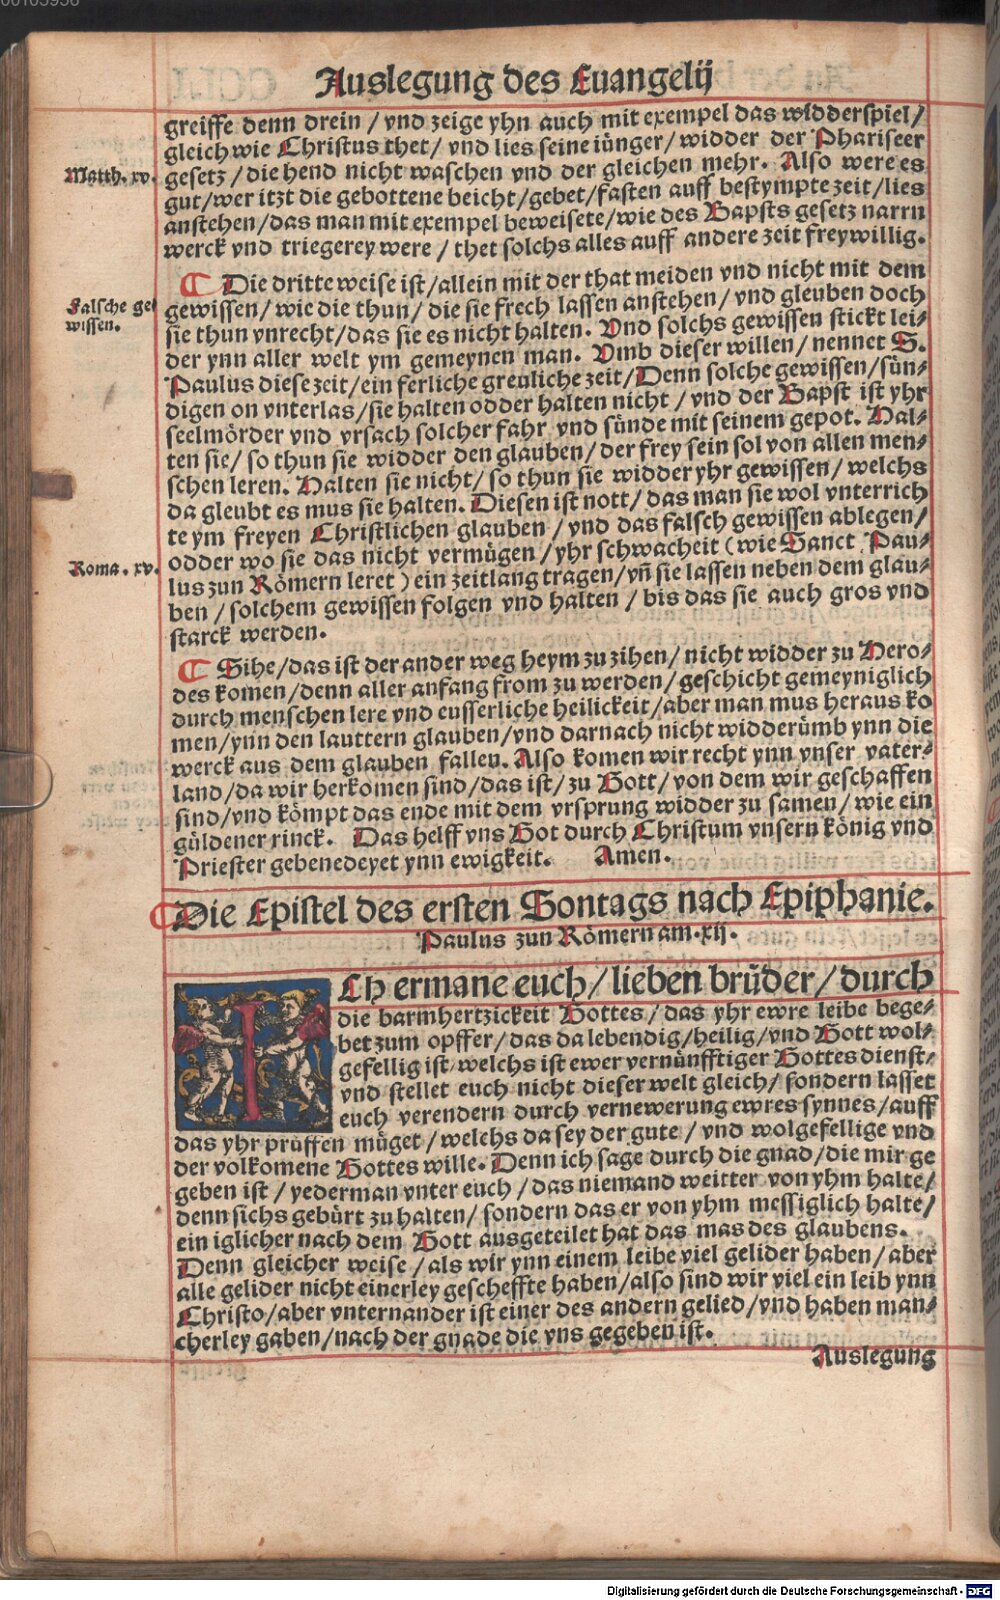 Auslegung des Euangelij
greiffe denn drein / vnd zeige yhn auch mit exempel das widderspiel /
gleich wie Christus thet / vnd lies seine iünger / widder der Phariseer
Matth. xv.
gesetz / die hend nicht waschen vnd der gleichen mehr. Also were es
gut / wer itzt die gebottene beicht / gebet / fasten auff bestympte zeit / lies
anstehen / das man mit exempel beweisete / wie des Bapsts gesetz narrn
werck vnd triegerey were / thet solchs alles auff andere zeit freywillig.
Die dritte weise ist / allein mit der that meiden vnd nicht mit dem
Falsche ge
wissen.
gewissen / wie die thun / die sie frech lassen anstehen / vnd gleuben doch
sie thun vnrecht / das sie es nicht halten. Vnd solchs gewissen stickt lei-
der ynn aller welt ym gemeynen man. Vmb dieser willen / nennet S.
Paulus diese zeit / ein ferliche greuliche zeit / Denn solche gewissen / sün-
digen on vnterlas / sie halten odder halten nicht / vnd der Bapst ist yhr
seelmörder vnd vrsach solcher fahr vnd sünde mit seinem gepot. Hal-
ten sie / so thun sie widder den glauben / der frey sein sol von allen men-
schen leren. Halten sie nicht / so thun sie widder yhr gewissen / welchs
da gleubt es mus sie halten. Diesen ist nott / das man sie wol vnterrich
te ym freyen Christlichen glauben / vnd das falsch gewissen ablegen /
Roma. xv.
odder wo sie das nicht vermügen / yhr schwacheit (wie Sanct Pau-
lus zun Römern leret) ein zeitlang tragen / vñ sie lassen neben dem glau-
ben / solchem gewissen folgen vnd halten / bis das sie auch gros vnd
starck werden.
Sihe / das ist der ander weg heym zu zihen / nicht widder zu Hero-
des komen / denn aller anfang from zu werden / geschicht gemeyniglich
durch menschen lere vnd eusserliche heilickeit / aber man mus heraus ko
men / ynn den lauttern glauben / vnd darnach nicht widderümb ynn die
werck aus dem glauben fallen. Also komen wir recht ynn vnser vater-
land / da wir herkomen sind / das ist / zu Gott / von dem wir geschaffen
sind / vnd kömpt das ende mit dem vrsprung widder zu samen / wie ein
güldener rinck. Das helff vns Got durch Christum vnsern könig vnd
Priester gebenedeyet ynn ewigkeit. Amen.
Die Epistel des ersten Sontags nach Epiphanie.
Paulus zun Römern am. xij.
ICh ermane euch / lieben brüder / durch
die barmhertzickeit Gottes / das yhr ewre leibe bege-
bet zum opffer / das da lebendig / heilig / vnd Gott wol-
gefellig ist / welchs ist ewer vernünfftiger Gottes dienst /
vnd stellet euch nicht dieser welt gleich / sondern lasset
euch verendern durch vernewerung ewres synnes / auff
das yhr prüffen müget / welchs da sey der gute / vnd wolgefellige vnd
der volkomene Gottes wille. Denn ich sage durch die gnad / die mir ge
geben ist / yederman vnter euch / das niemand weitter von yhm halte /
denn sichs gebürt zu halten / sondern das er von yhm messiglich halte /
ein iglicher nach dem Gott ausgeteilet hat das mas des glaubens.
Denn gleicher weise / als wir ynn einem leibe viel gelider haben / aber
alle gelider nicht einerley gescheffte haben / also sind wir viel ein leib ynn
Christo / aber vnternander ist einer des andern gelied / vnd haben man-
cherley gaben / nach der gnade die vns gegeben ist.
Auslegung
Digitalisierung gefördert durch die Deutsche Forschungsgemeinschaft - DFG